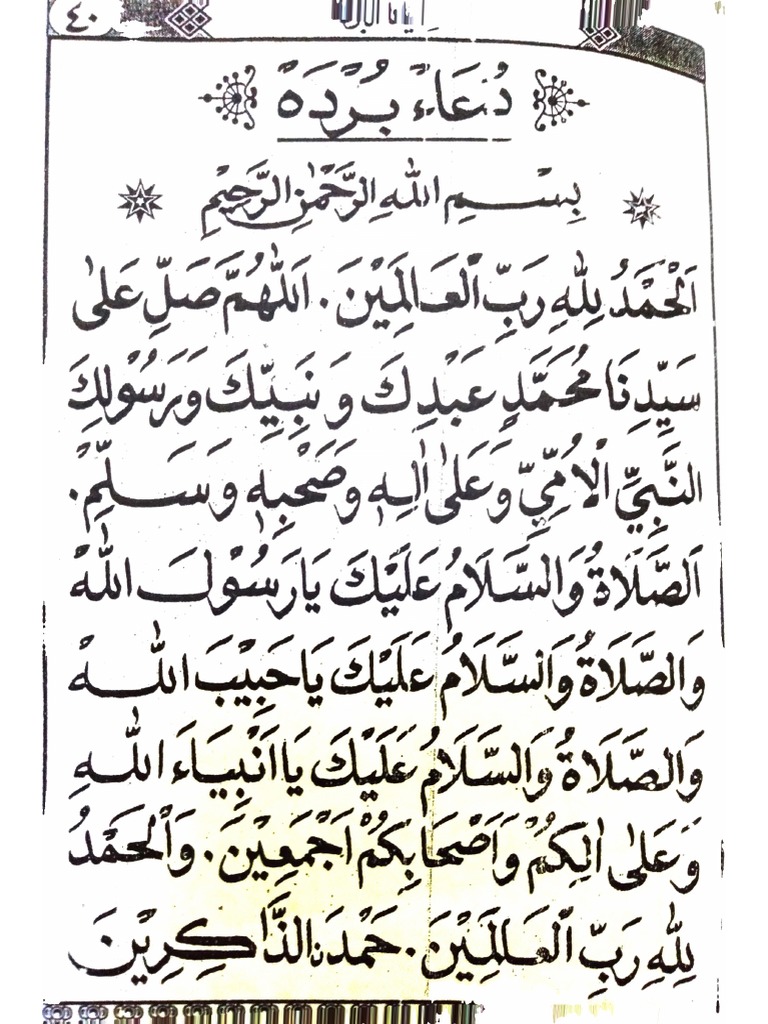 ٤٠
دُعَاءْ بُرْدَهْ
بِسْمِ اللهِ الرَّحْمٰنِ الرَّحِيْمِ
اَلْحَمْدُ لِلّٰهِ رَبِّ الْعَالَمِيْنَ. اَللّٰهُمَّ صَلِّ عَلىٰ
سَيِّدِنَا مُحَمَّدٍ عَبْدِكَ وَنَبِيِّكَ وَرَسُوْلِكَ
النَّبِيِّ الْاُمِّيِّ وَعَلىٰ اٰلِهٖ وَصَحْبِهٖ وَسَلِّمْ.
اَلصَّلَاةُ وَالسَّلَامُ عَلَيْكَ يَارَسُوْلَ اللّٰهْ
وَالصَّلَاةُ وَالسَّلَامُ عَلَيْكَ يَاحَبِيْبَ اللّٰهْ
وَالصَّلَاةُ وَالسَّلَامُ عَلَيْكَ يَااَنْبِيَاءَ اللّٰهِ
وَعَلىٰ اٰلِكُمْ وَاَصْحَابِكُمْ اَجْمَعِيْنَ. وَالْحَمْدُ
لِلّٰهِ رَبِّ الْعَالَمِيْنَ. حَمْدَ الذَّاكِرِيْنَ